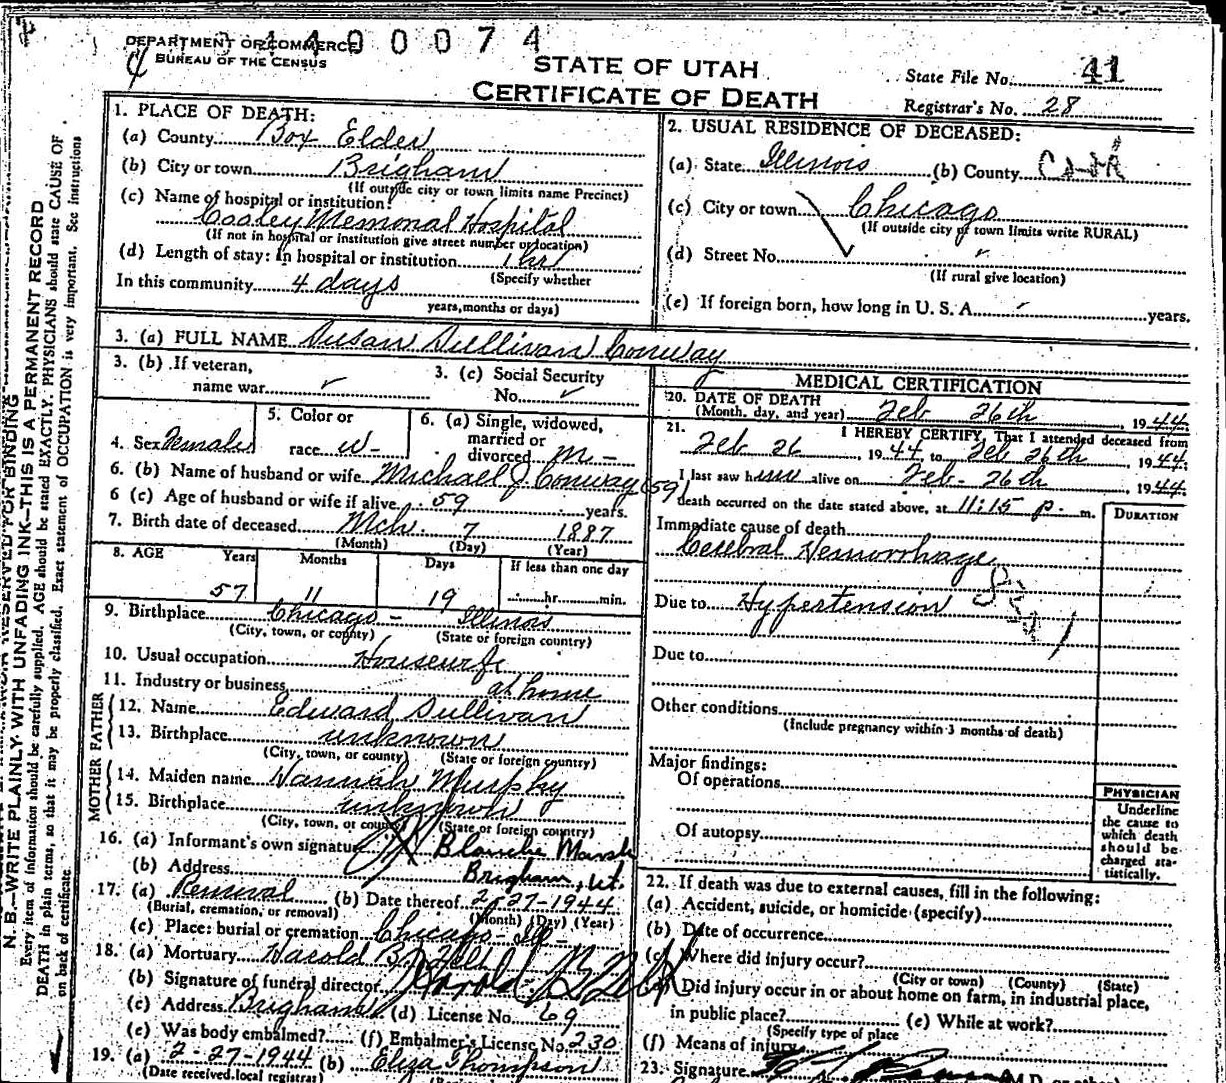 DEPARTMENT OF COMMERCE
BUREAU OF THE CENSUS
4400074
STATE OF UTAH
CERTIFICATE OF DEATH
State File No. 41
Registrar's No. 28
1. PLACE OF DEATH:
(a) County Box Elder
(b) City or town Brigham
(If outside city or town limits name Precinct)
(c) Name of hospital or institution:
Cooley Memorial Hospital
(If not in hospital or institution give street number or location)
(d) Length of stay: In hospital or institution 1 hr
(Specify whether
In this community 4 days
years, months or days)
2. USUAL RESIDENCE OF DECEASED:
(a) State Illinois (b) County
(c) City or town Chicago
(If outside city of town limits write RURAL)
(d) Street No.
(If rural give location)
(e) If foreign born, how long in U. S. A. years.
3. (a) FULL NAME Susan Sullivan Conway
3. (b) If veteran,
name war
3. (c) Social Security
No.
4. Sex Female
5. Color or
race W-
6. (a) Single, widowed,
married or
divorced M-
6. (b) Name of husband or wife Michael J Conway (59)
6 (c) Age of husband or wife if alive 59 years.
7. Birth date of deceased Mch. 7 1887
(Month) (Day) (Year)
8. AGE Years Months Days If less than one day
57 11 19 hr. min.
9. Birthplace Chicago - Illinois
(City, town, or county) (State or foreign country)
10. Usual occupation Housewife
11. Industry or business at home
FATHER
12. Name Edward Sullivan
13. Birthplace unknown
(City, town, or county) (State or foreign country)
MOTHER
14. Maiden name Hannah Murphy
15. Birthplace unknown
(City, town, or county) (State or foreign country)
16. (a) Informant's own signature Blanche Marsh
(b) Address Brigham, Ut.
17. (a) Removal (b) Date thereof 2-27-1944
(Burial, cremation, or removal) (Month) (Day) (Year)
(c) Place: burial or cremation Chicago - Ill -
18. (a) Mortuary Harold B. Felt
(b) Signature of funeral director Harold B Felt
(c) Address Brigham (d) License No. 69
(e) Was body embalmed? (f) Embalmer's License No. 230
19. (a) 2-27-1944 (b) Eliza Thompson
(Date received local registrar)
MEDICAL CERTIFICATION
20. DATE OF DEATH
(Month, day, and year) Feb 26th 1944
21. I HEREBY CERTIFY, That I attended deceased from
Feb 26, 1944 to Feb 26th 1944
I last saw h alive on Feb - 26th 1944
death occurred on the date stated above, at 11:15 p. m.
DURATION
Immediate cause of death
Cerebral Hemorrhage
Due to Hypertension
Due to
Other conditions
(Include pregnancy within 3 months of death)
Major findings:
Of operations
Of autopsy
PHYSICIAN
Underline
the cause to
which death
should be
charged sta-
tistically.
22. If death was due to external causes, fill in the following:
(a) Accident, suicide, or homicide (specify)
(b) Date of occurrence
(c) Where did injury occur?
(City or town) (County) (State)
Did injury occur in or about home on farm, in industrial place,
in public place? (e) While at work?
(Specify type of place
(f) Means of injury
23. Signature
N. B.—WRITE PLAINLY WITH UNFADING INK—THIS IS A PERMANENT RECORD
Every item of information should be carefully supplied. AGE should be stated EXACTLY. PHYSICIANS should state CAUSE OF
DEATH in plain terms, so that it may be properly classified. Exact statement of OCCUPATION is very important. See instructions
on back of certificate.